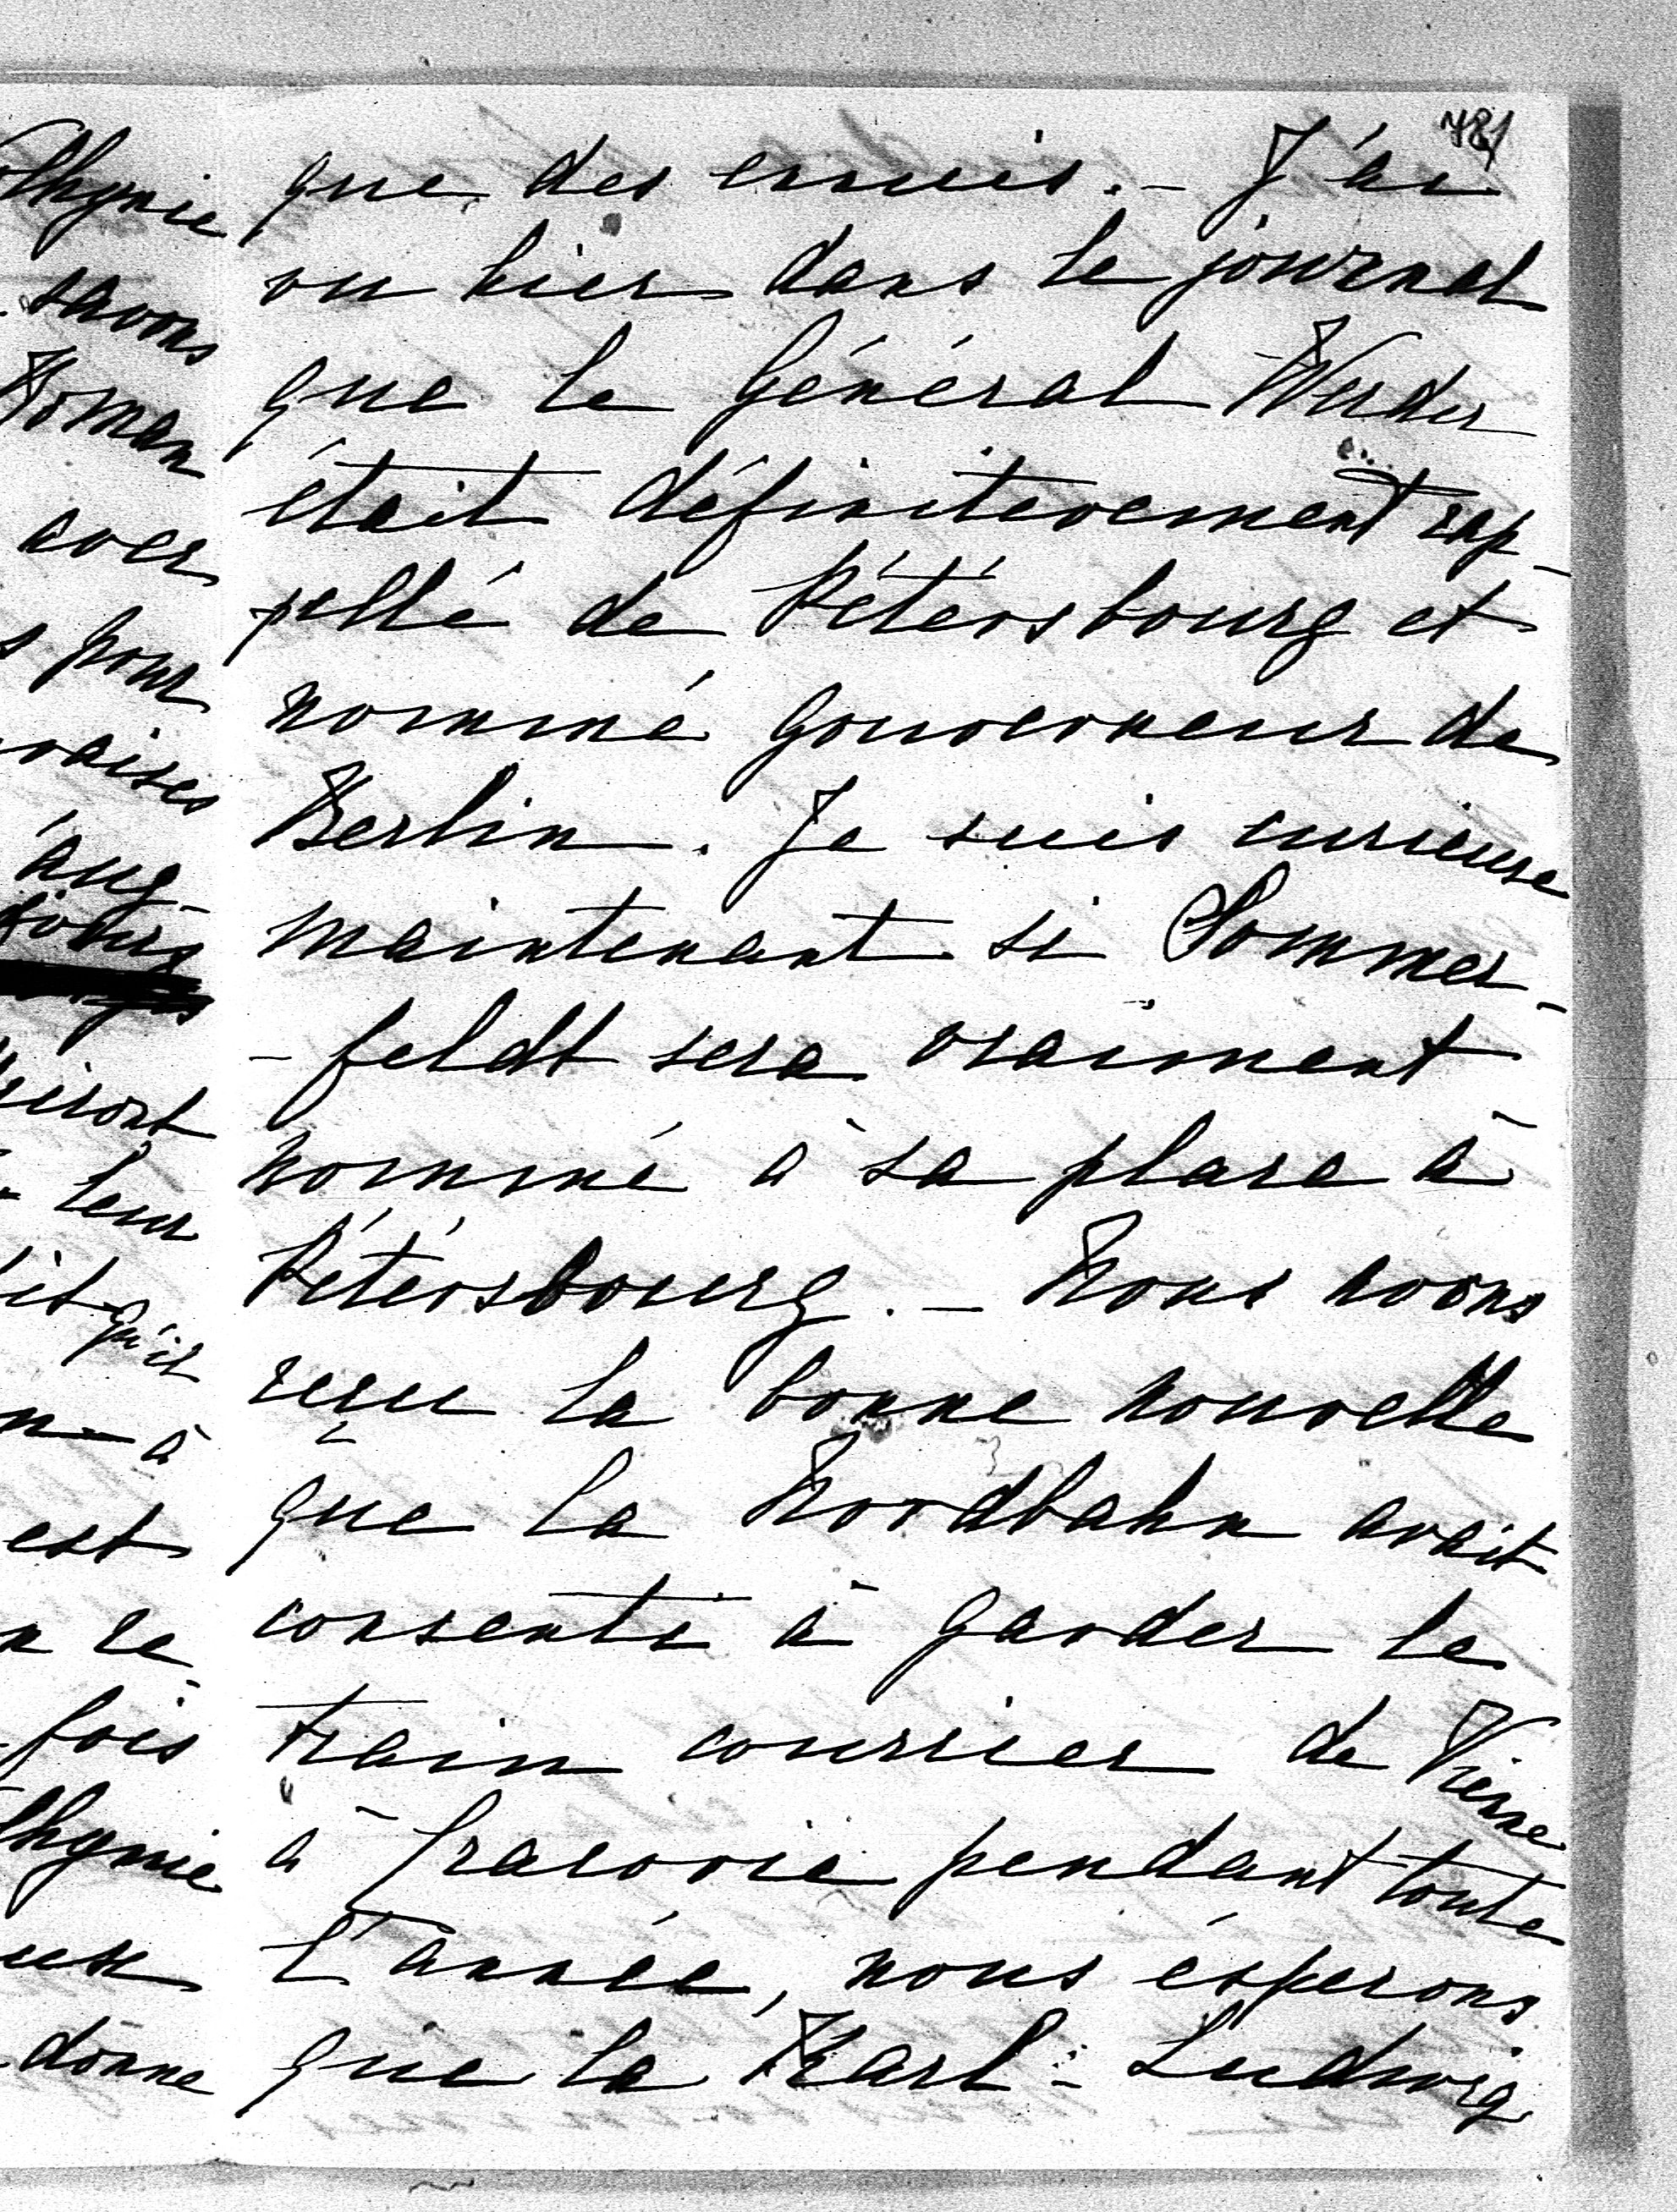 781
que des ennuis. - J'ai
vu hier dans le journal
que le Général Werder
était définitevement rap-
pellé de Pétérsbourg et
nommé gouverneur de
Berlin. Je suis curieuse
maintenant si Sommer-
-feldt sera vraiment
nommé à sa place à
Pétérsbourg. - Nous avons
reçu la bonne nouvelle
que la Nordbahn avait
consenti à garder le
train courrier de Vienne
à Cracovie pendant toute
l'année, nous ésperons
que la Karl-Ludwig
savons
Roman
aver
pour
vaises
aug-
leur
qu'il
à
est
re-
fois
donne